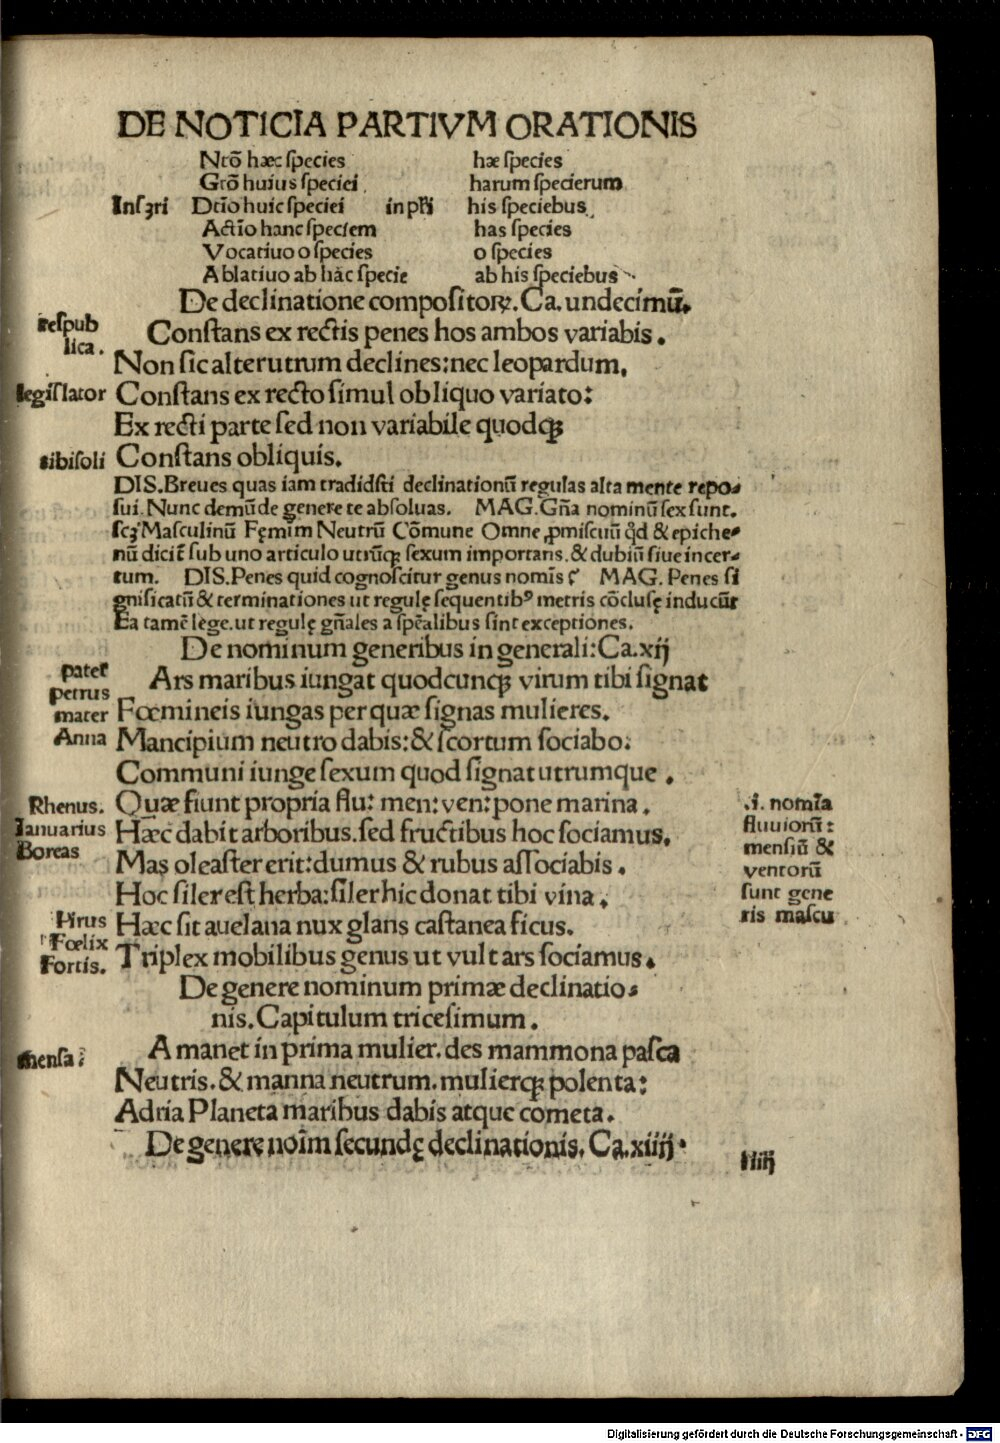 DE NOTICIA PARTIVM ORATIONIS
Ntõ hæc species hæ species
Gtõ huius speciei harum specierum
Insʒri Dtĩo huic speciei in plĩ his speciebus
Actĩo hanc speciem has species
Vocatiuo o species o species
Ablatiuo ab hac specie ab his speciebus
De declinatione compositoꝝ. Ca. undecimũ.
respub
lica.
Constans ex rectis penes hos ambos variabis.
Non sic alterutrum declines: nec leopardum.
legislator Constans ex recto simul obliquo variato:
Ex recti parte sed non variabile quodqꝫ
tibisoli Constans obliquis.
DIS. Breues quas iam tradidsti declinationũ regulas alta mente repo-
sui. Nunc demũ de genere te absoluas. MAG. Gña nominũ sex sunt.
scʒ Masculinũ Fęmim Neutrũ Cõmune Omne ꝓmiscuũ qd & epiche-
nũ dicit̃ sub uno articulo utrũqꝫ sexum importans. & dubiũ siue incer-
tum. DIS. Penes quid cognoscitur genus nomĩs? MAG. Penes si
gnificatũ & terminationes ut regulę sequentibꝰ metris cõclusę inducũt
Ea tamẽ lege. ut regulę gñales a spẽalibus sint exceptiones.
De nominum generibus in generali: Ca. xij
pater
petrus
mater
Anna
Ars maribus iungat quodcunqꝫ virum tibi signat
Fœmineis iungas per quæ signas mulieres.
Mancipium neutro dabis: & scortum sociabo:
Communi iunge sexum quod signat utrumque.
Rhenus.
Ianuarius
Boreas
Quæ fiunt propria flu: men: ven: pone marina.
Hæc dabit arboribus. sed fructibus hoc sociamus.
Mas oleaster erit: dumus & rubus associabis.
Hoc siler est herba: siler hic donat tibi vina.
.i. nomĩa
fluuiorũ:
mensiũ &
ventorũ
sunt gene
ris mascu
Pirus
Fœlix
Fortis.
Hæc sit auelana nux glans castanea ficus.
Triplex mobilibus genus ut vult ars sociamus.
De genere nominum primæ declinatio-
nis. Capitulum tricesimum.
mensa: A manet in prima mulier. des mammona pasca
Neutris. & manna neutrum. mulierqꝫ polenta:
Adria Planeta maribus dabis atque cometa.
De genere noĩm secundę declinationis. Ca. xiiij.
Digitalisierung gefördert durch die Deutsche Forschungsgemeinschaft - DFG